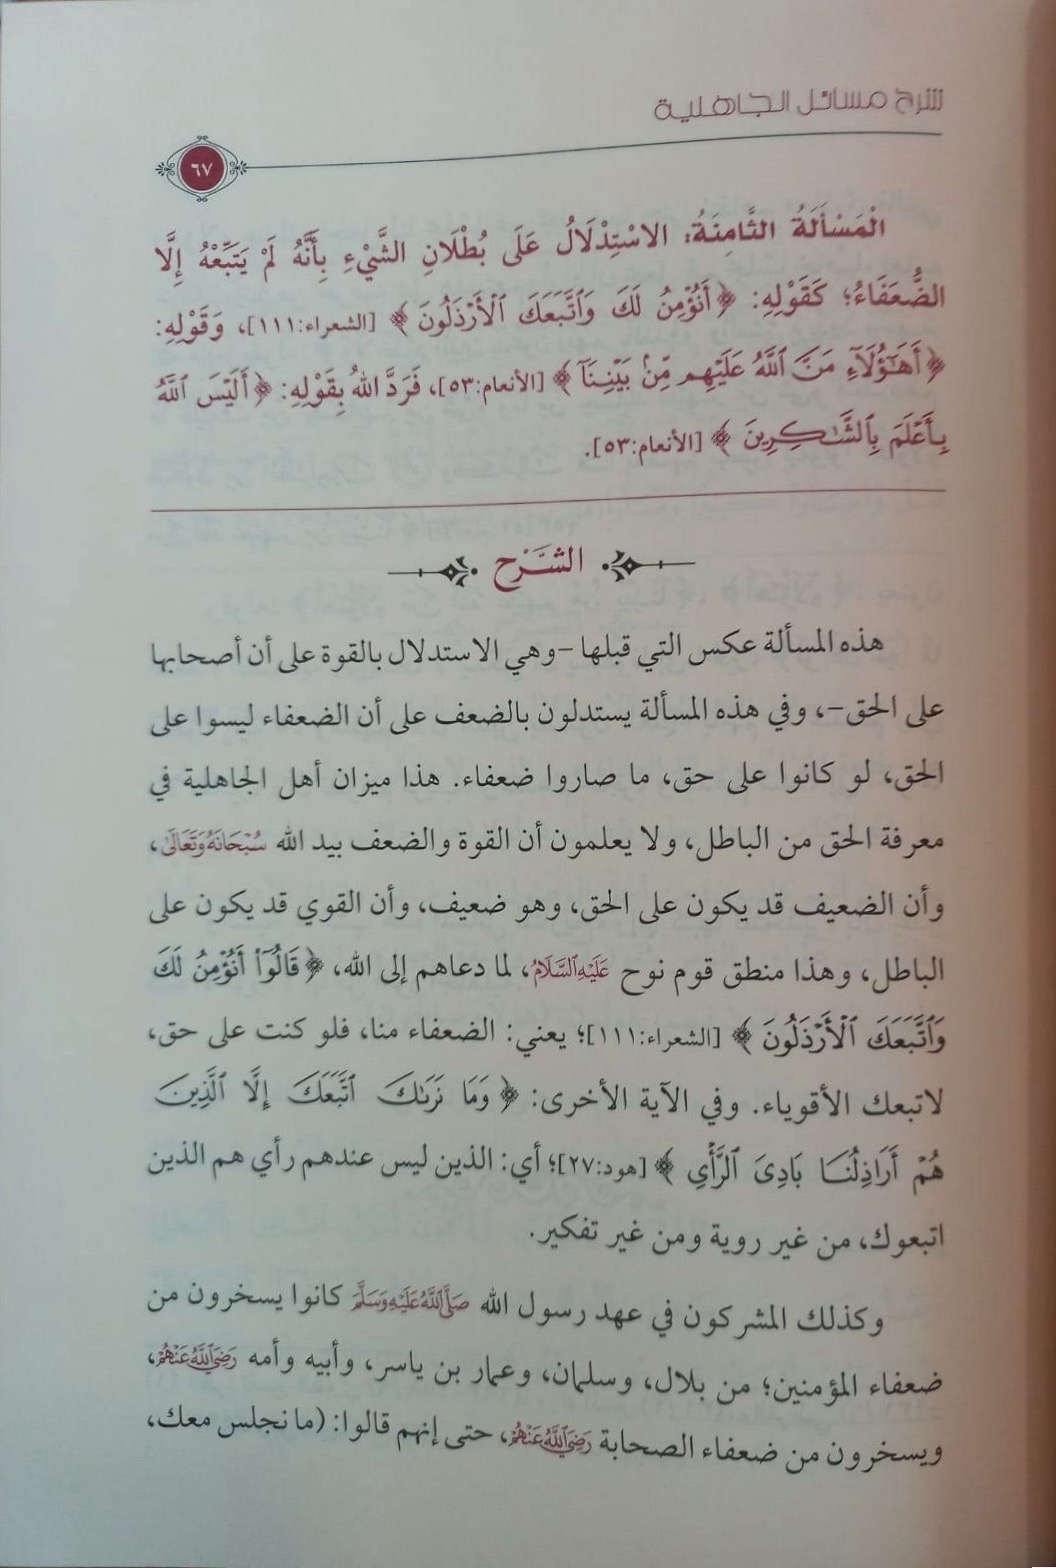 شرح مسائل الجاهلية
٦٧
الْمَسْأَلَةُ الثَّامِنَةُ: الاسْتِدْلَالُ عَلَى بُطْلَانِ الشَّيْءِ بِأَنَّهُ لَمْ يَتَّبِعْهُ إِلَّا
الضُّعَفَاءُ؛ كَقَوْلِهِ: ﴿ أَنُؤْمِنُ لَكَ وَٱتَّبَعَكَ ٱلْأَرْذَلُونَ ﴾ [الشعراء:١١١]، وَقَوْلِهِ:
﴿ أَهَٰٓؤُلَآءِ مَنَّ ٱللَّهُ عَلَيْهِم مِّنۢ بَيْنِنَآ ﴾ [الأنعام:٥٣]، فَرَدَّ اللهُ بِقَوْلِهِ: ﴿ أَلَيْسَ ٱللَّهُ
بِأَعْلَمَ بِٱلشَّٰكِرِينَ ﴾ [الأنعام:٥٣].
الشَّرْح
هذه المسألة عكس التي قبلها -وهي الاستدلال بالقوة على أن أصحابها
على الحق-، وفي هذه المسألة يستدلون بالضعف على أن الضعفاء ليسوا على
الحق، لو كانوا على حق، ما صاروا ضعفاء. هذا ميزان أهل الجاهلية في
معرفة الحق من الباطل، ولا يعلمون أن القوة والضعف بيد الله سُبْحَانَهُ وَتَعَالَى،
وأن الضعيف قد يكون على الحق، وهو ضعيف، وأن القوي قد يكون على
الباطل، وهذا منطق قوم نوح عَلَيْهِ السَّلَامُ، لما دعاهم إلى الله، ﴿ قَالُوٓا۟ أَنُؤْمِنُ لَكَ
وَٱتَّبَعَكَ ٱلْأَرْذَلُونَ ﴾ [الشعراء:١١١]؛ يعني: الضعفاء منا، فلو كنت على حق،
لاتبعك الأقوياء. وفي الآية الأخرى: ﴿ وَمَا نَرَىٰكَ ٱتَّبَعَكَ إِلَّا ٱلَّذِينَ
هُمْ أَرَاذِلُنَا بَادِىَ ٱلرَّأْىِ ﴾ [هود:٢٧]؛ أي: الذين ليس عندهم رأي هم الذين
اتبعوك، من غير روية ومن غير تفكير.
وكذلك المشركون في عهد رسول الله صَلَّى اللَّهُ عَلَيْهِ وَسَلَّمَ كانوا يسخرون من
ضعفاء المؤمنين؛ من بلال، وسلمان، وعمار بن ياسر، وأبيه وأمه رَضِيَ اللَّهُ عَنْهُمْ،
ويسخرون من ضعفاء الصحابة رَضِيَ اللَّهُ عَنْهُمْ، حتى إنهم قالوا: (ما نجلس معك،